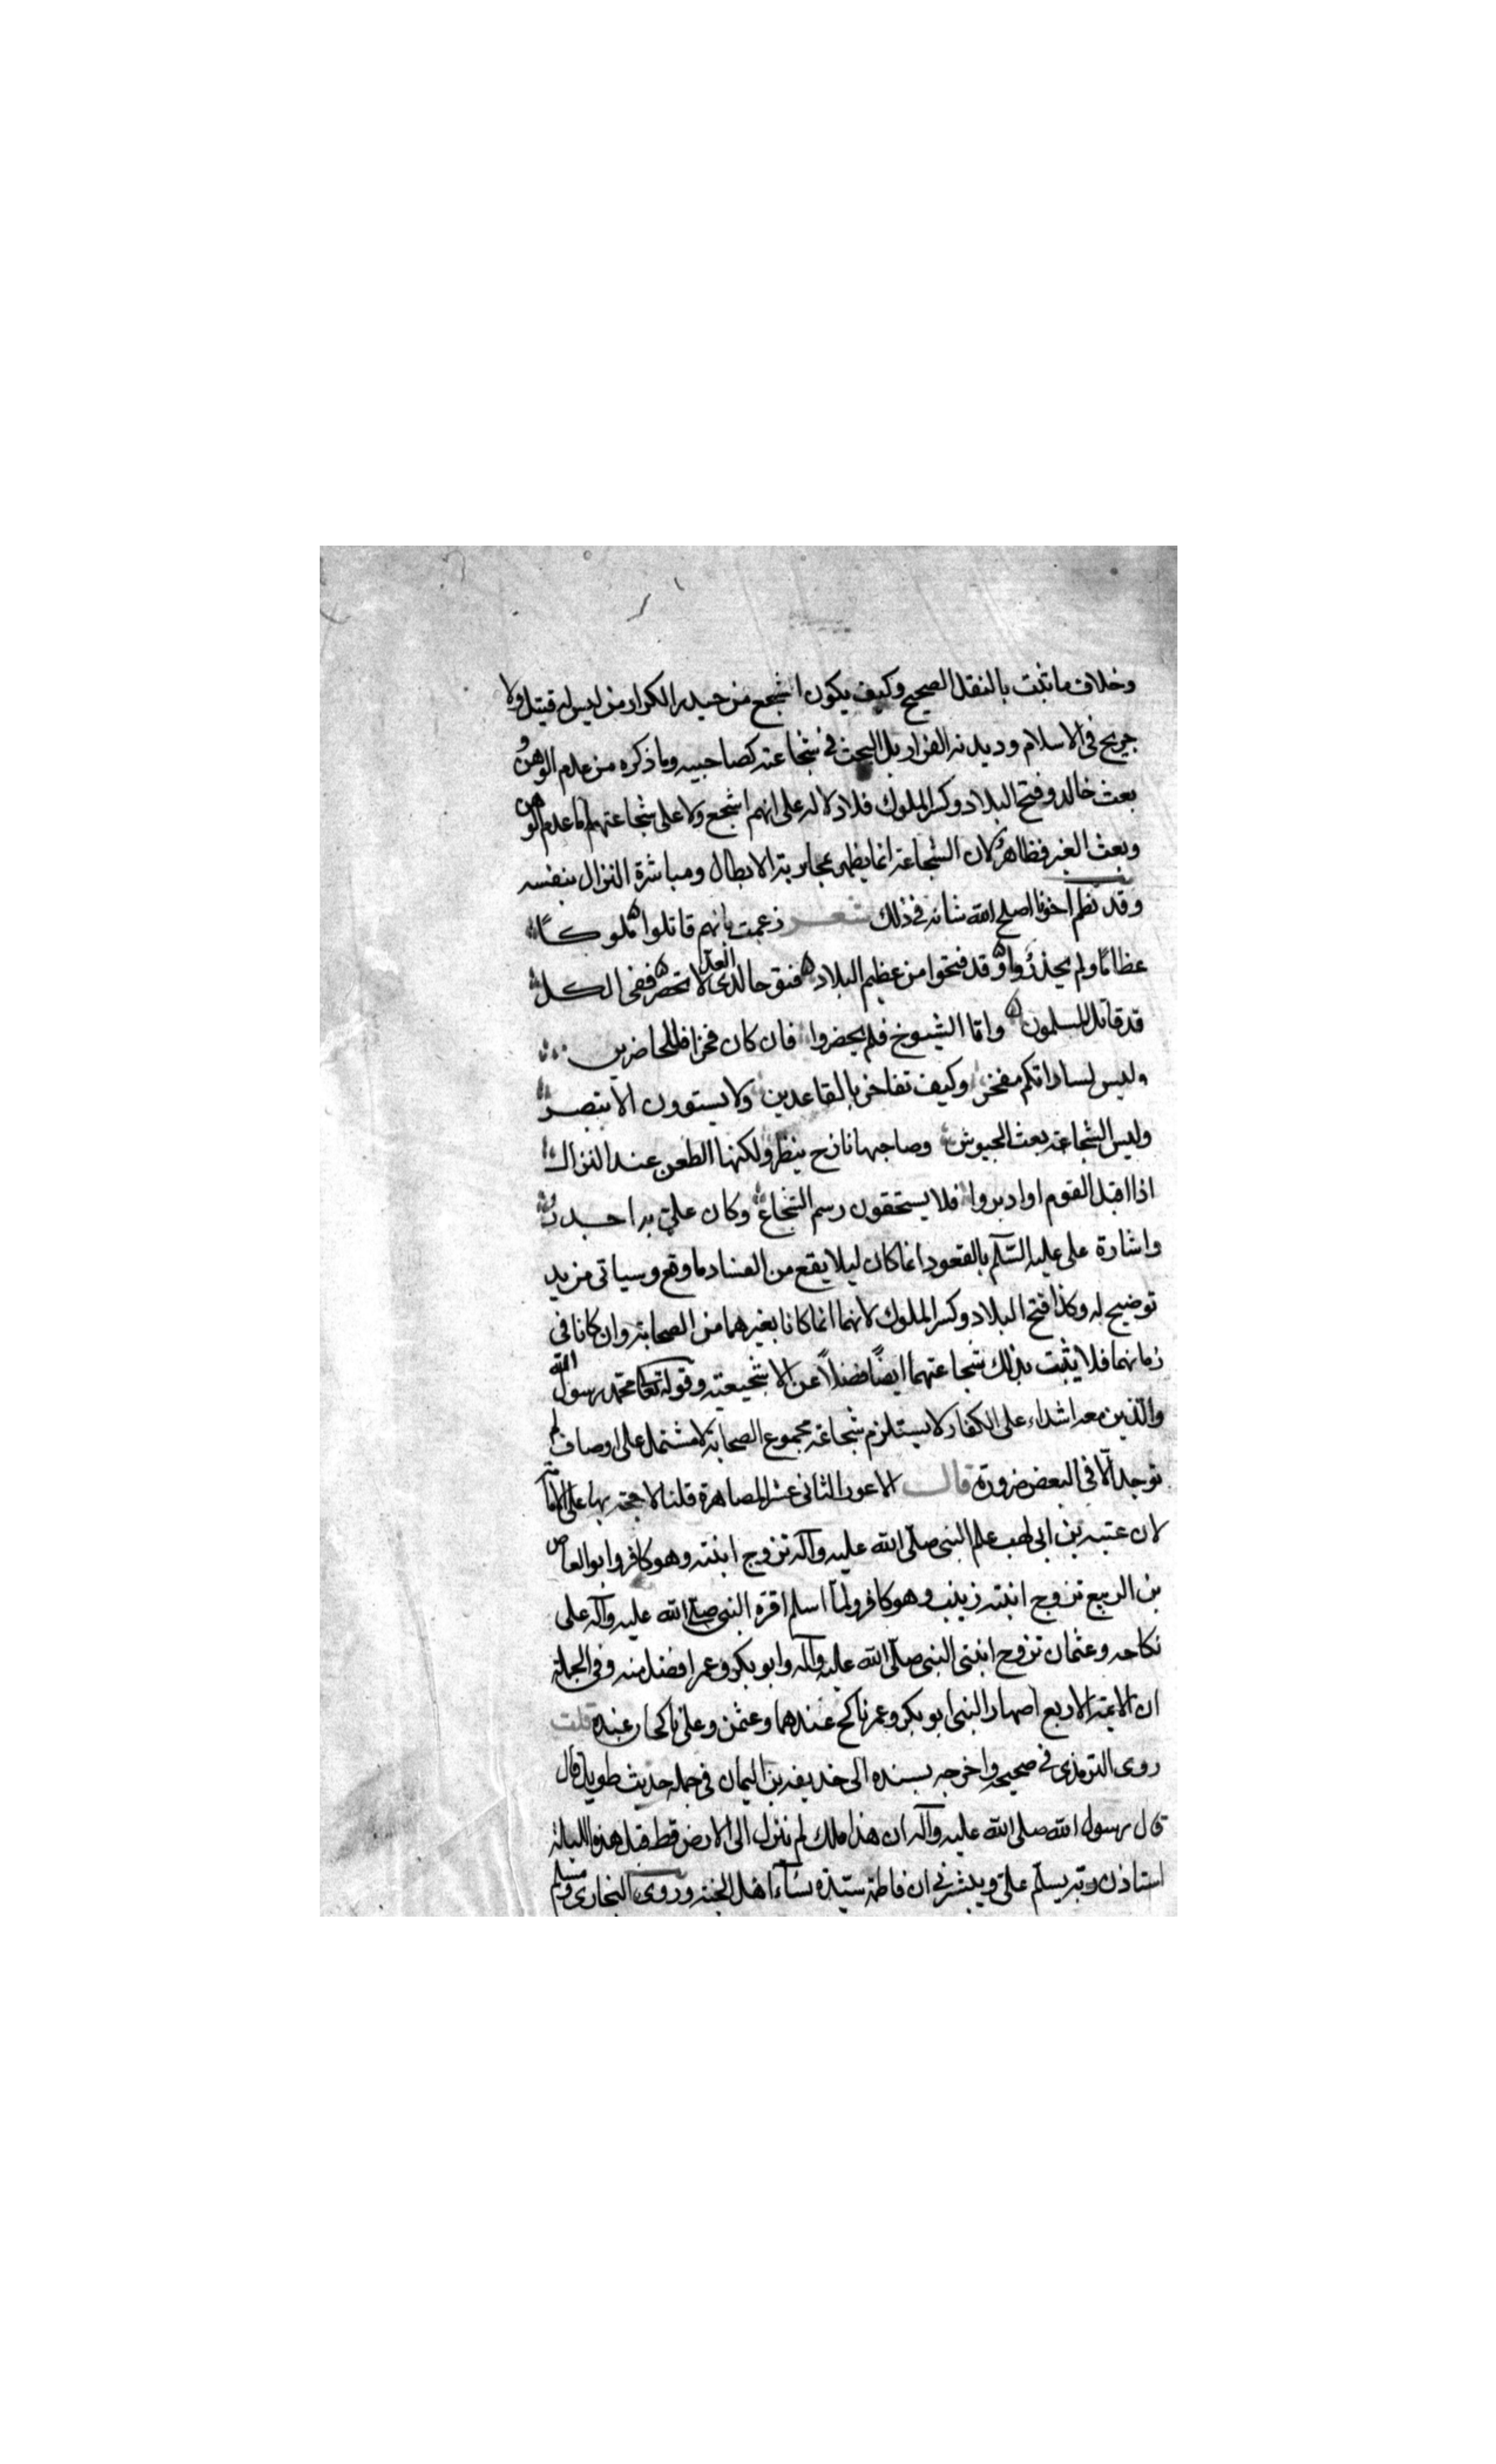 وخلاف ما ثبت بالنقل الصحيح وكيف يكون اشجع من حيدر الكرار من ليس له قتيل ولا
جريح فى الاسلام وديدنه الفرار بل البحث فى شجاعته كصاحبيه وما ذكره من عدم الوهن و
بعث خالد وفتح البلاد وكسر الملوك فلا دلاله على انهم اشجع ولا على شجاعتهم اما عدم الوهن
وبعث الغير فظاهر لان الشجاعة انما يظهر بمحاربة الابطال ومباشرة النزال بنفسه
وقد نظم اخونا اصلح الله شانه فى ذلك شعر زعمت بانهم قاتلوا ملوكا
عظاما ولم يحذروا وقد فتحوا من عظيم البلاد فتوحا لدى العد لا تحصر ففى الكل
قد قاتل المسلمون واما الشيوخ فلم يحضروا فان كان فخرا فللحاضرين
وليس لساداتكم مفخر وكيف تفاخر بالقاعدين ولا يستوون الا تبصر
وليس الشجاعة بعث الجيوش وصاحبها نازح ينظر ولكنها الطعن عند النزال
اذا اقبل القوم او ادبروا فلا يستحقون رسم الشجاع وكان على به اجدر
واشارة على عليه السّلم بالقعود انما كان ليلا يقع من الفساد ما وقع وسياتى مزيد
توضيح له وكذا فتح البلاد وكسر الملوك لانهما انما كانا بغيرهما من الصحابة وان كانا فى
زمانهما فلا يثبت بذلك شجاعتهما ايضًا فضلاً عن الاشجيعته وقوله تعا محمد رسول الله
والّذين معه اشداء على الكفار لا يستلزم شجاعة مجموع الصحابة لا مشتمل على اوصاف لم
توجد الّا فى البعض ضرورة قال الاعور الثانى عشر المصاهرة قلنا لا حجة بها على الامامة
لان عتبه بن ابى لهب علم النبى صلّى الله عليه وآله تزوج ابنته وهو كافر وابو العاص
بن الربيع تزوج ابنته زينب وهو كافر ولمّا اسلم اقره النبى صلّى الله عليه وآله على
نكاحه وعثمان تزوج ابنتى النبى صلّى الله عليه وآله وابو بكر وعمر افضل منه وفى الجملة
ان الائمة الاربع اصهار النبى ابو بكر وعمر ناكح عندهما وعثمن وعلى ناكحان عنده قلت
روى الترمذى فى صحيحه واخرجه بسنده الى حذيفه بن اليمان فى جمله حديث طويل قال
قال رسول الله صلى الله عليه وآله ان هذا ملك لم ينزل الى الارض قط قبل هذه الليلة
استاذن ربه يسلّم علىّ ويبشرنى ان فاطمة سيّدة نسآء اهل الجنة وروى البخارى ومسلم